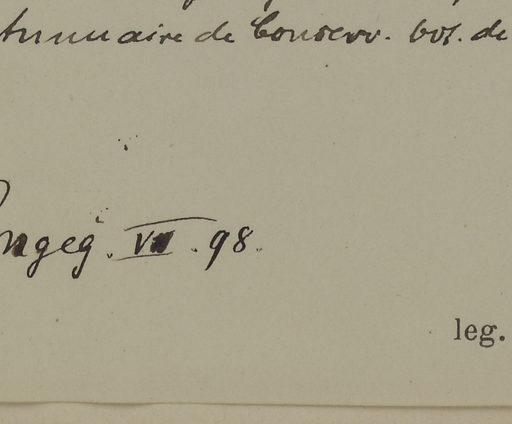 Annuaire de Conserv. bot. de
ngeg. VII. 98.
leg.